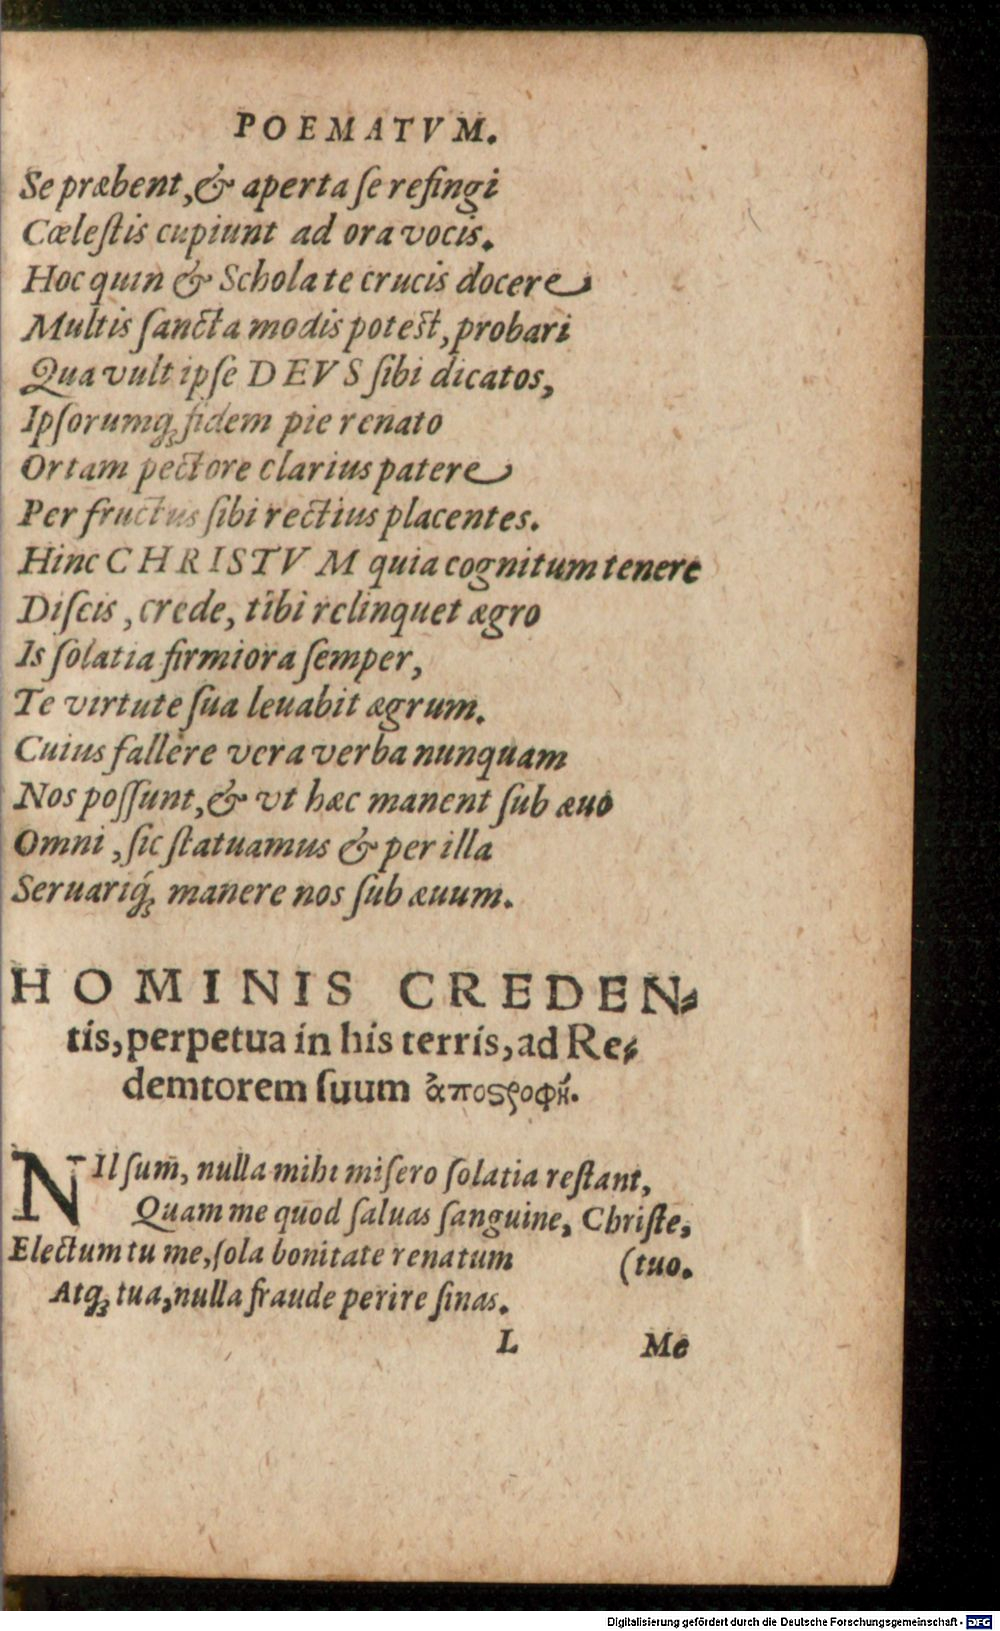 POEMATVM.
Se præbent, & aperta se refingi
Cœlestis cupiunt ad ora vocis.
Hoc quin & Schola te crucis docere
Multis sancta modis potest, probari
Qua vult ipse DEVS sibi dicatos,
Ipsorumq; fidem pie renato
Ortam pectore clarius patere
Per fructus sibi rectius placentes.
Hinc CHRISTVM quia cognitum tenere
Discis, crede, tibi relinquet ægro
Is solatia firmiora semper,
Te virtute sua leuabit ægrum.
Cuius fallere vera verba nunquam
Nos possunt, & vt hæc manent sub æuo
Omni, sic statuamus & per illa
Seruariq́; manere nos sub æuum.
HOMINIS CREDEN⸗
tis, perpetua in his terris, ad Re⸗
demtorem suum ἀποςροφή.
NIl sum, nulla mihi misero solatia restant,
Quam me quod saluas sanguine, Christe,
Electum tu me, sola bonitate renatum (tuo.
Atq; tua, nulla fraude perire sinas.
L Me
Digitalisierung gefördert durch die Deutsche Forschungsgemeinschaft - DFG